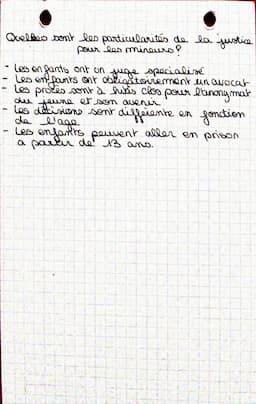 Quelles sont les particularités de la justice
pour les mineurs ?
- Les enfants ont un juge specialisé
- Les enfants ont obligatoirement un avocat
- Les procès sont à huis clos pour l'anonymat
du jeune et son avenir
- Les décisions sont différente en fonction
de l'age
- Les enfants peuvent aller en prison
a partir de 13 ans.